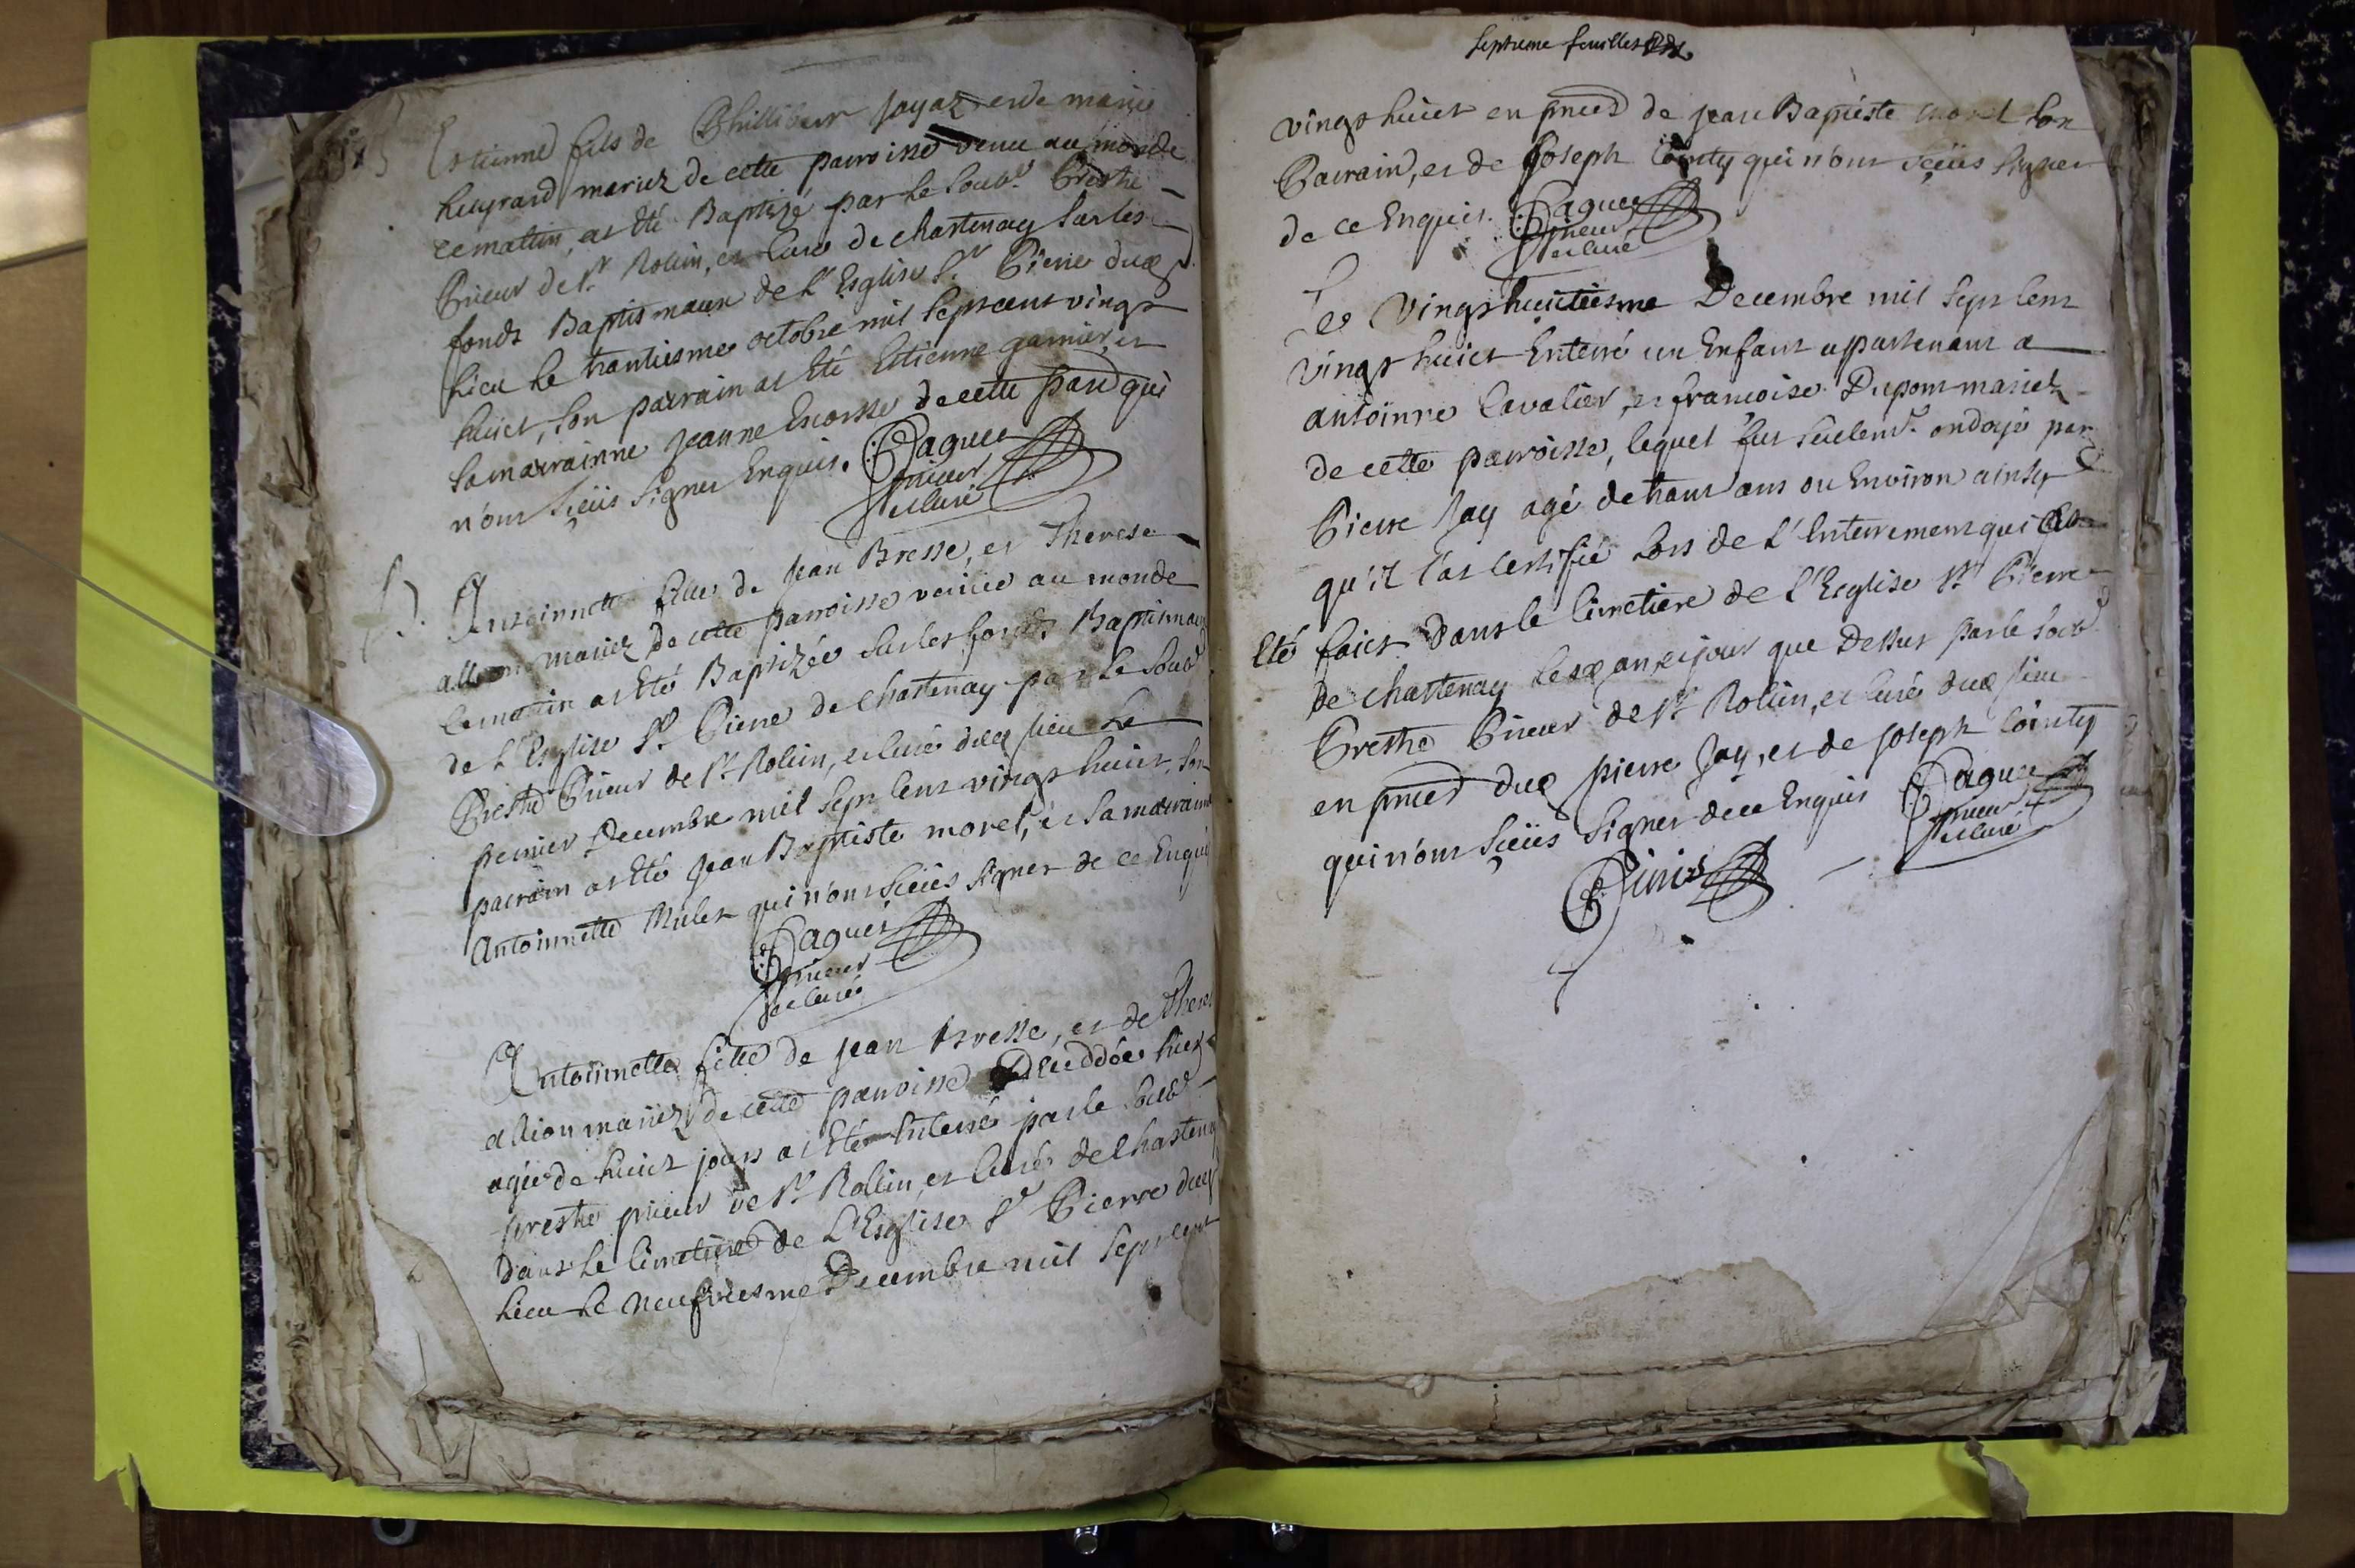 Estienne fils de Phillibeur Jayat et de marie
heugrard mariez de cette parroisse venu au monde
ce matin, at Eté Baptizé par le Soub.é Prestre
Prieur de St Rolin, et Curé de chastenay Sur les
fonds Baptismaux de L'Esglise St Pierre dud
Lieu Le trantiesme octobre mil Sept cent vingt
huict, Son parrain at Eté Estienne garnier, et
Sa marrainne Jeanne Enosse de cette parr qui
n'ont Sçeüs Signer Enquis. Paquet
prieur
et Curé
B. Antoinette fille de Jean Bresse, et Therese
allion mariez de cette parroisse venüe au monde
ce matin at Eté Baptizée Sur les fonds Baptismaux
de L'Esglise St Pierre de Chastenay par le Soubé
Prestre Prieur de St Rolin, et Curé dud Lieu Le
premier Decembre mil Sept Cent vingt huict, Son
parrain at Eté Jean Baptiste morel, et Sa marrainne
Antoinnette Mulet qui n'ont Sçeüs Signer de ce Enquis
Paquet
prieur
et Curé
Antoinnette fille de Jean bresse, et de Theres
allion mariez de cette parroisse Deceddée hier
agée de huict jours at Eté Enterré par le Soubé
prestre prieur de St Rollin, et Curé de Chastenay
Dans Le Cimetiere de L'Esglise St Pierre dud
Lieu Le Neufviesme Decembre mil Sept Cent
Septieme feuillet
vingt huict en pnce de Jean Baptiste morel Son
Parrain, et de Joseph Cointy qui n'ont Sçeüs Signer
de ce Enquis. Paquet
prieur
et Curé
Le Vingt huictiesme Decembre mil Sept Cent
vingt huict Enterré un Enfant appartenant a
antoinne Cavalier, et francoise Dupont mariez
de cette parroisse, lequel fut Seulemt ondoyé par
Pierre Jay agé de trant ans ou Environ ainsy
qu'il l'at Certifié Lors de L'Enterrement qui at
Eté faict Dans le Cimetiere de L'Esglise St Pierre
de Chastenay Les an, et jour que Dessus par le Soubé
Prestre Prieur de St Rollin, et Curé dud Lieu
en pnce dud pierre Jay, et de Joseph Cointy
qui n'ont Sçeüs Signer de ce Enquis Paquet
prieur
et Curé
Finis